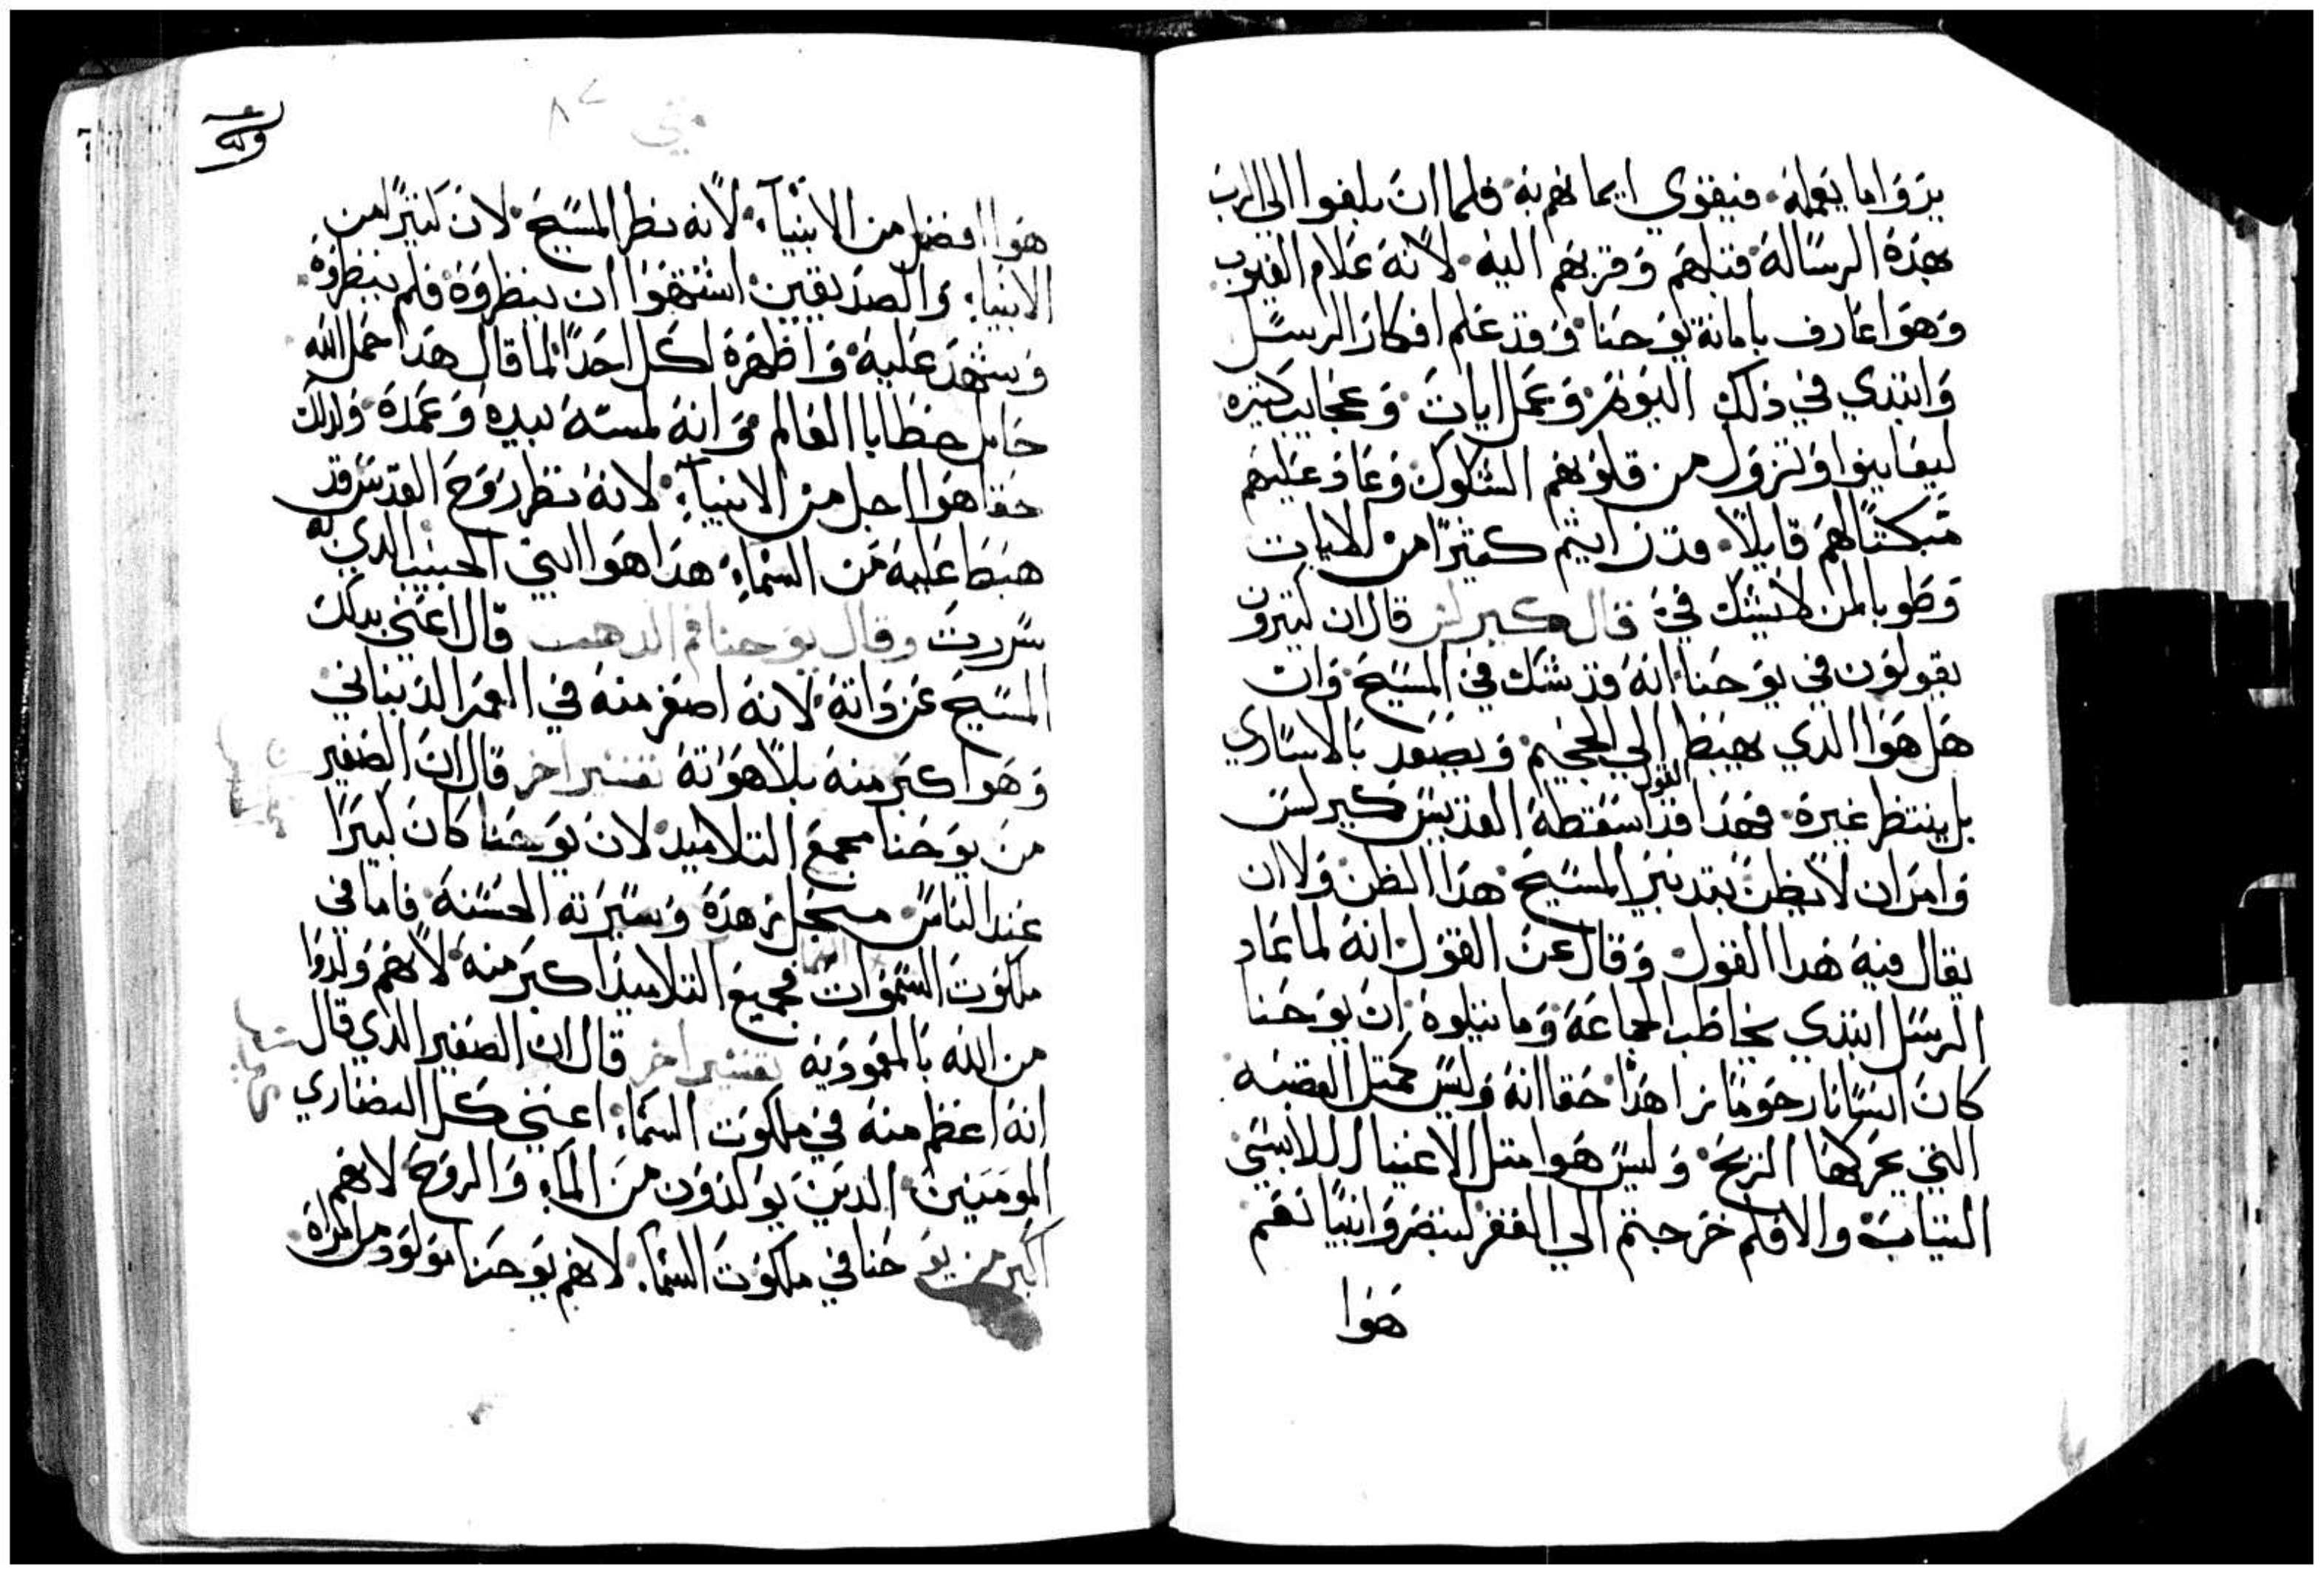 يروا ما يعمله. فيقوي ايمانهم به. فلما ان بلغوا الي الرب
بهذه الرسالة قبلهم وقربهم اليه. لانه علام الغيوب
وهوا عارف بامانة يوحنا. وقد علم افكار الرسل
وابتدي في ذلك اليوم. وعمل ايات. وعجايب كتيره
ليعاينوا وتزول من قلوبهم الشكوك وعاد عليهم
مبكتًا لهم قايلًا. قد رايتم كثيرًا من الايات
وطوبا لمن لا يشك فيّ قال كيرلس قال ان كتيرون
يقولون في يوحنا. انه قد شك في المسيح. وان
هل هوا الدي يهبط الي الجحيم. ويصعد بالاساري
بل ينتظر غيره. فهدا القول قد اسقطه القديس كيرلس
وامر ان لا يظن بتدبير المسيح. هدا الظن ولا ان
يقال فيه هدا القول. وقال عن القول. انه لما عاد
الرسل ابتدي يخاطب الجماعة. وما يتلوه. ان يوحنا
كان انسانا رحوما نرا هدا حقا انه وليس كمتل القصبه
التي يحركها الريح. وليس هوا متل الاغنيا اللابسي
التياب. والا فلم خرجتم الي القفر لتبصروا نبيا نعم
هوا
متي ٨٧
هوا افضل من الانبيآء. لانه نظر المسيح. لان كتيرًا من
الانبياء. والصديقين. اشتهوا ان ينظروه فلم ينظروه.
وشهد عليه. واظهره لكل احدًا. لما قال هدا حمل الله
حامل خطايا العالم. وانه لمسه بيده وعمده. ولدلك
حقا هوا اجل من الانبيآء. لانه نظر روح القدس قد
هبط عليه من السماء. هدا هوا ابني الحبيب الدي به
سررت وقال يوحنا فم الدهب قال اعني بدلك
المسيح عن داته. لانه اصغر منه في العمر الدنياني
وهوا كبر منه بلاهوته تفسير اخر قال ان الصغير
من يوحنا مجمع التلاميد. لان يوحنا كان كبيرًا
عند الناس. من اجل زهده وسيرته الحسنة. فاما في
ملكوت السموات فجميع التلاميد اكبر منه. لانهم ولدوا
من الله بالمعمودية تفسير اخر قال ان الصغير الدي قال
انه اعظم منه في ملكوت السماء. اعني كل النصاري
المومنين. الدين يولدون من الماء والروح. لانهم
اكبر من يوحنا في ملكوت السماء. لانهم يوحنا مولود من امراة.